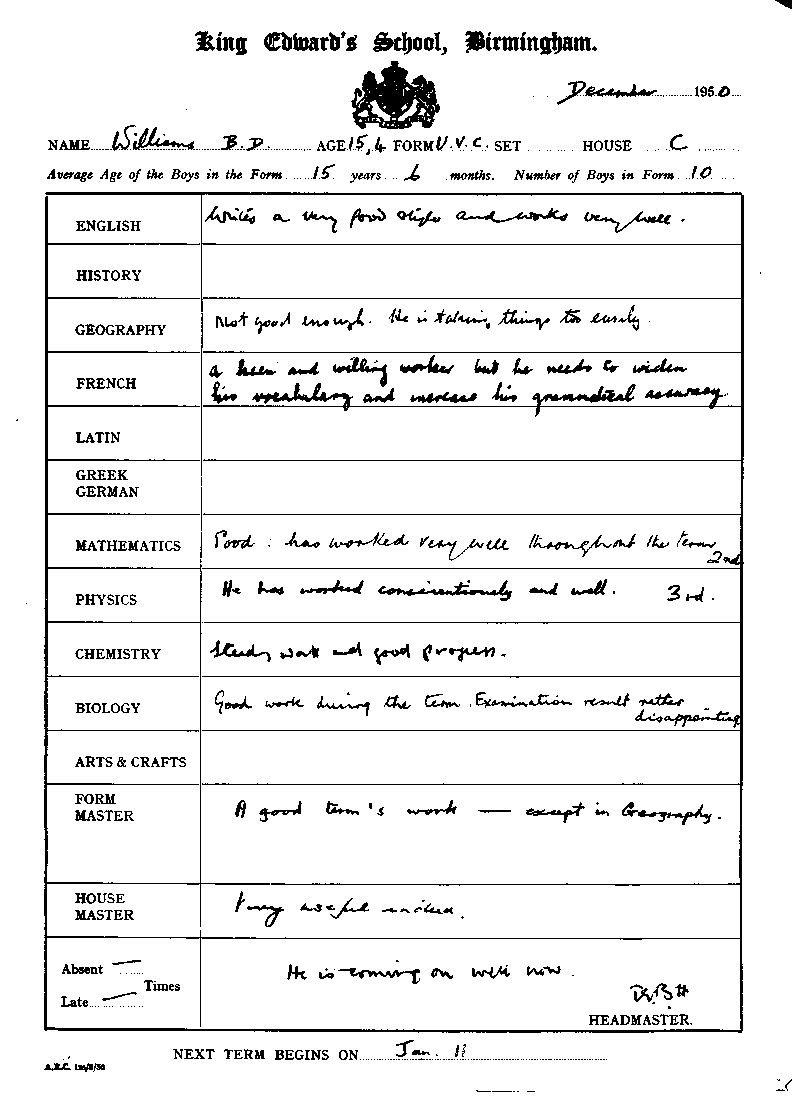 King Edward's School, Birmingham.
December 1950
NAME Williams B.D. AGE 15,4 FORM U.V.C. SET HOUSE C
Average Age of the Boys in the Form 15 years 6 months. Number of Boys in Form 10
ENGLISH Writes a very good style and works very well.
HISTORY
GEOGRAPHY Not good enough. He is taking things too easily.
FRENCH A keen and willing worker but he needs to widen
his vocabulary and increase his grammatical accuracy
LATIN
GREEK
GERMAN
MATHEMATICS Good: has worked very well throughout the term
2nd
PHYSICS He has worked conscientiously and well. 3rd.
CHEMISTRY Steady work and good progress.
BIOLOGY Good work during the term. Examination result rather
disappointing
ARTS & CRAFTS
FORM
MASTER A good term's work — except in Geography.
HOUSE
MASTER Very useful indeed.
Absent — Times
Late —
He is coming on well now.
HEADMASTER.
NEXT TERM BEGINS ON Jan. 11